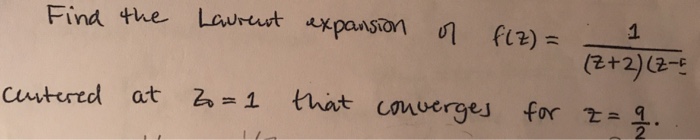 Find the Laurent expansion of f(z) = 1 / (z+2)(z-5
centered at z₀ = 1 that converges for z = 9/2.